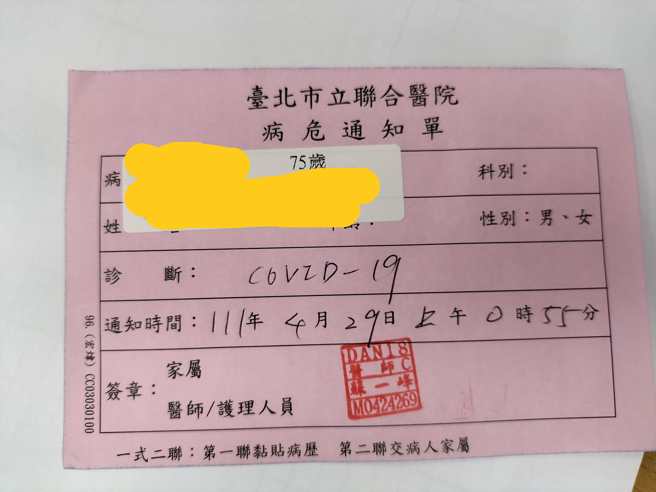 臺北市立聯合醫院
病危通知單
病 75歲 科別：
姓 性別：男、女
診 斷： COVID-19
通知時間：111年 4月 29日 上午 0時 55分
家屬
簽章：
醫師/護理人員
DANIS
醫師C
一峰
M0424269
一式二聯：第一聯黏貼病歷 第二聯交病人家屬
96.
CC03030100